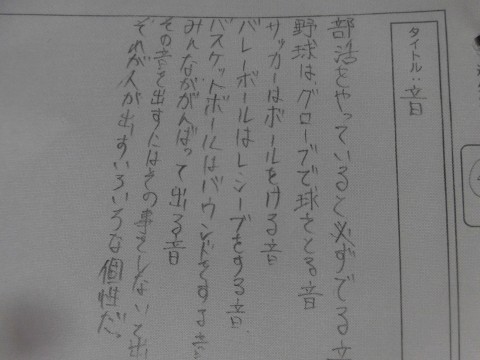 タイトル:音
部活をやっていると必ずでる音
野球は、グローブで球をとる音
サッカーはボールをける音
バレーボールはレシーブをする音
バスケットボールはバウンドをする音
みんなががんばって出る音
その音を出すにはその事をしないと出
それが人が出すいろいろな個性だ。